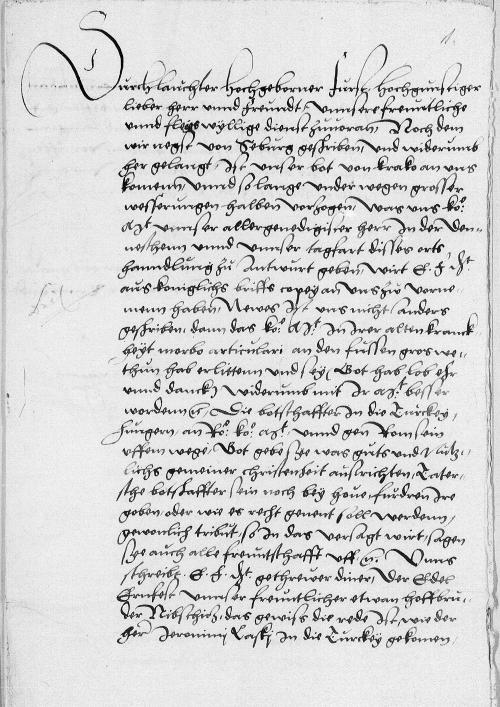 1.
Durchlauchter hochgeborner Furst hochgunstiger
lieber herr unnd freundt, unnsere freuntliche
unnd fleys wyllige dienst zuuoran Noch dem
wir negst von Seburg geschriben und widerumb
her gelangt, Ist unser bot von krako an uns
komenn, unnd so lange under wegen grosser
wesserungen halben vorzogen, was uns ko:
M:t unnser allergenedigister herr In der
unnd unnser tagfart disses orts
hanndlung zu Antwurt geben wirt E. F. D:t
aus koniglichs briffs copey an uns hir vorne-
menn haben, Newes Ist uns nicht Anders
geschriben, dann das ko: M:t In Irer alten kranck-
heyt morbo articulari an den fussen gros we-
thun hab erlittenn und sey, Got hab lob ehr
unnd danck, widerumb mit Ir M:t besser
wordenn etc. Die botschaffter In die Turckey,
hungern, an Ro: ko: M:t, unnd gen Rom sein
uffem wege, Got gebe sye was guts und Nutz-
lichs gemeiner christenheit ausrichten, Tater-
sche botschaffter sein noch bey houe, furdren Ire
goben, oder wie es recht genent soll werdenn,
gewonlich tribut, so In das versagt wirt, sagen
sye auch alle freuntschafft uff etc. Unns
schreibt E. F. D:t gethrewer diner, Der Edel
Ernfest unnser freuntlicher etwan hoffbru-
der Nibschicz, das gewiss die rede Ist, wie der
her Ieronimj Laskj In die Turckey gekomen,